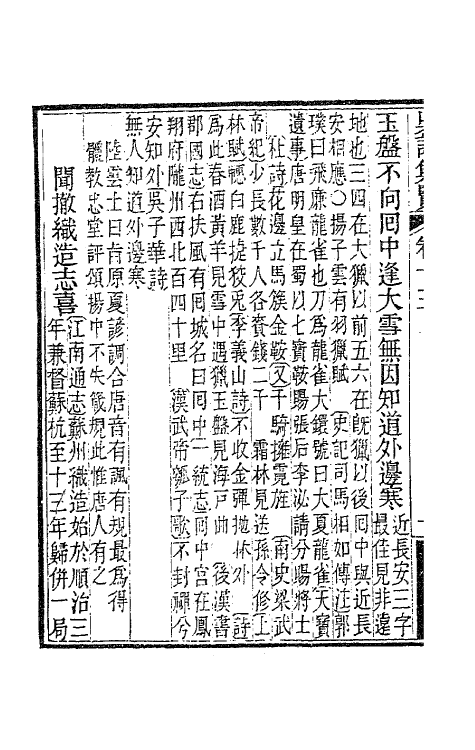 玉盤不向囘中逢大雪無因知道外邊寒近長安三字
最佳見非遠
地也三四在大獵以前五六在旣獵以後囘中與近長
安相應○揚子雲有羽獵賦 史記司馬相如傳注郭
璞曰飛廉龍雀也刀爲龍雀大鐶號曰大夏龍雀天寶
遺事唐明皇在蜀以七寶鞍賜張后李泌請分賜將士
杜詩花邊立馬簇金鞍又千騎擁霓旌 南史梁武
帝紀少長數千人各賚錢二千 霜林見送孫令修上
林賦轊白鹿捷狡兎李義山詩不收金彈抛林外 詩
爲此春酒黃羊見雪中遇獵玉盤見海戸曲 後漢書
郡國志右扶風有囘城名曰囘中一統志囘中宮在鳳
翔府隴州西北百四十里 漢武帝瓠子歌不封禪兮
安知外吳子華詩
無人知道外邊寒
陸雲士曰肯原夏諺調合唐音有諷有規最爲得
體敎忠堂評頌揚中不失箴規此惟唐人有之
聞撤織造志喜江南通志蘇州織造始於順治三
年兼督蘇杭至十三年歸併一局